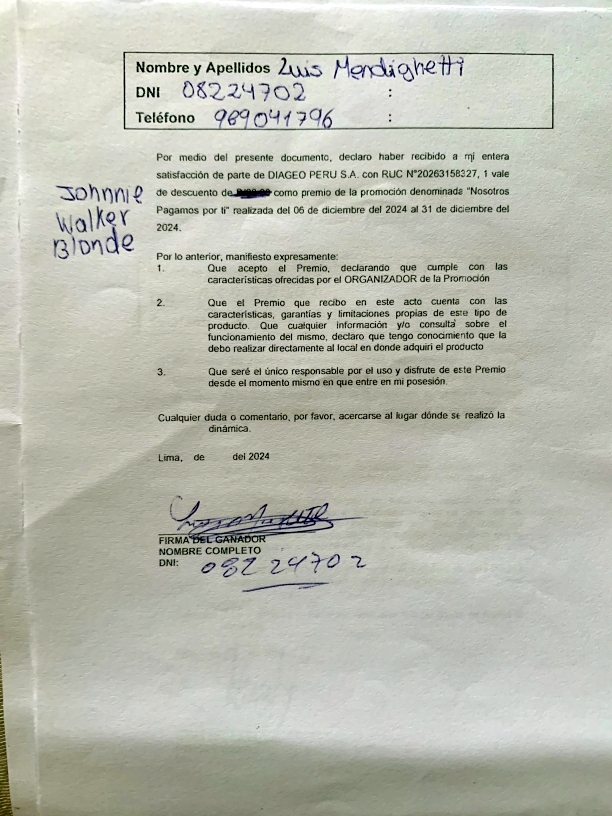 Nombre y Apellidos Luis Mendighetti
DNI 08224702 :
Teléfono 989041796 :
Por medio del presente documento, declaro haber recibido a mi entera
satisfacción de parte de DIAGEO PERU S.A. con RUC N°20263158327, 1 vale
de descuento de como premio de la promoción denominada "Nosotros
Pagamos por ti" realizada del 06 de diciembre del 2024 al 31 de diciembre del
2024.
Johnnie
Walker
Blonde
Por lo anterior, manifiesto expresamente:
1. Que acepto el Premio, declarando que cumple con las
características ofrecidas por el ORGANIZADOR de la Promoción
2. Que el Premio que recibo en este acto cuenta con las
características, garantías y limitaciones propias de este tipo de
producto. Que cualquier información y/o consulta sobre el
funcionamiento del mismo, declaro que tengo conocimiento que la
debo realizar directamente al local en donde adquirí el producto
3. Que seré el único responsable por el uso y disfrute de este Premio
desde el momento mismo en que entre en mi posesión.
Cualquier duda o comentario, por favor, acercarse al lugar dónde se realizó la
dinámica.
Lima, de del 2024
FIRMA DEL GANADOR
NOMBRE COMPLETO
DNI: 08224702